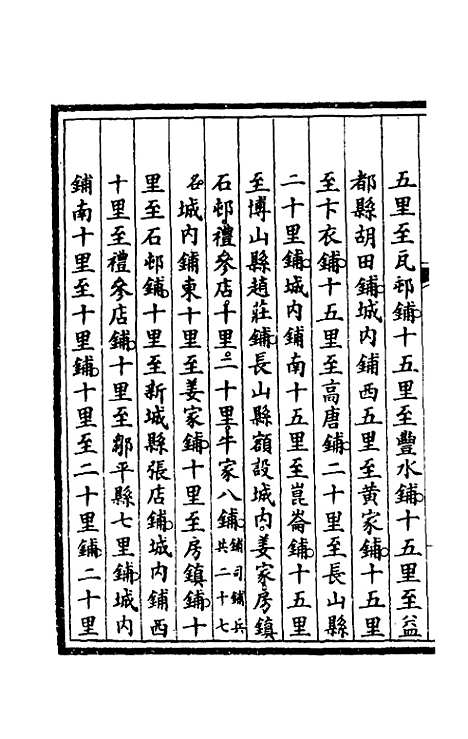 五里至瓦邨鋪十五里至豐水鋪十五里至益
都縣胡田鋪城内鋪西五里至黄家鋪十五里
至卞衣鋪十五里至高唐鋪二十里至長山縣
二十里鋪城内鋪南十五里至崑崙鋪十五里
至博山縣趙莊鋪長山縣額設城内姜家房鎮
石邨禮參店十里二十里牛家八鋪鋪司鋪兵兵二十七
名城内鋪東十里至姜家鋪十里至房鎮鋪十
里至石邨鋪十里至新城縣張店鋪城内鋪西
十里至禮參店鋪十里至鄒平縣七里鋪城内
鋪南十里至十里鋪十里至二十里鋪二十里